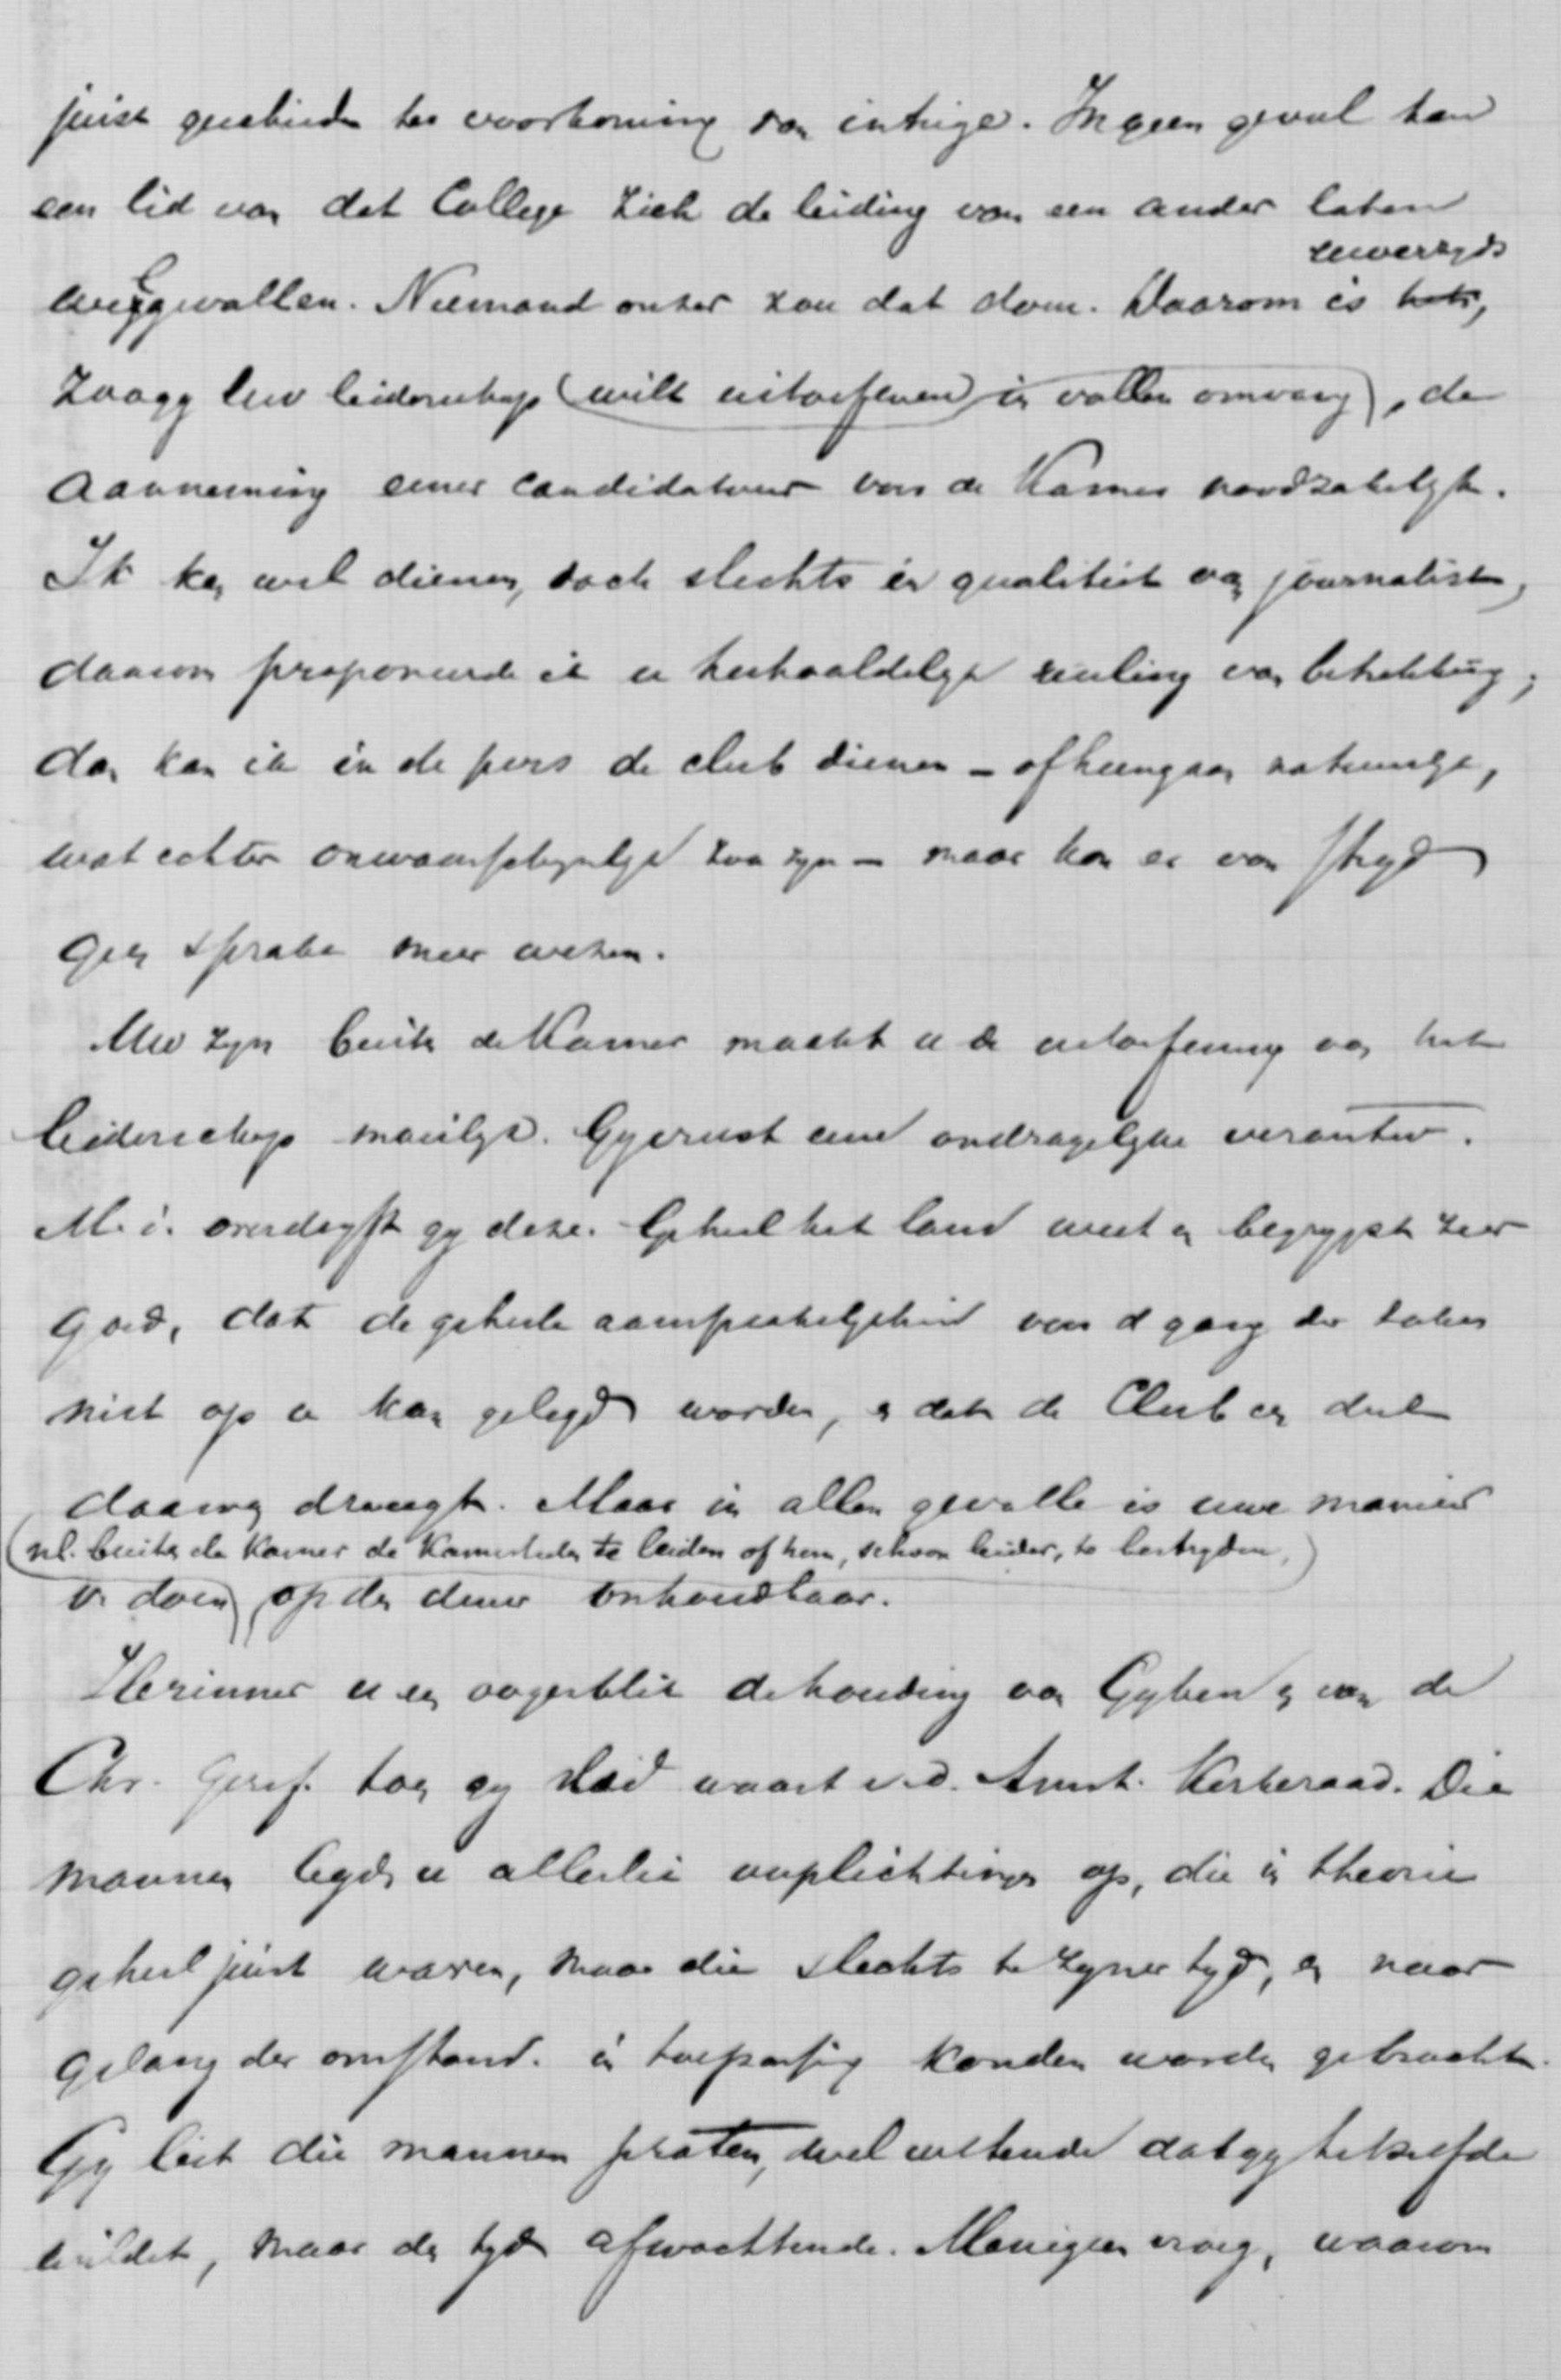 juist geschieden ter voorkoming van intrige. In geen geval kan
een lid van dat College zich de leiding van een ander laten
welgevallen. Niemand onzer zou dat doen. Daarom is
uwerzyds
zoo gy uw leiderschap (wilt uitoefenen in vollen omvang), de
aanneming eener candidatuur voor de Kamer noodzakelyk.
Ik kan wel dienen, doch slechts in qualiteit van journalist,
daarom proponeerde ik u herhaaldelyk ruiling van betrekking;
dan kan ik in de pers de club dienen – natuurlyk,
wat echter zou zyn – maar kan er van stryd
geen sprake meer wezen.
Uw zyn buiten de Kamer maakt u de uitoefening van het
leiderschap moeilyk. Gy vreest eene ondragelyke verantw.
M. i. overdryft gy deze. Geheel het land weet en begrypt zeer
goed, dat de geheele aansprakelykheid voor d gang der zaken
niet op u kan gelegd worden, en dat de Club een deel
daarvan draagt. Maar in allen gevalle is uwe manier
(nl. buiten de Kamer de Kamerleden te leiden of hen, schoon leider, te bestryden,)
v. doen op den duur onhoudbaar.
Herinner u een oogenblik de houding van Gyben en van de
Chr. Geref. toen gy lid waart v. d. Amst. Kerkeraad. Die
mannen legden u allerlei verplichtingen op, die in theorie
geheel juist waren, maar die slechts te zyner tyd, en naar
gelang der omstand. in toepassing konden worden gebracht.
Gy liet die mannen praten, wel wetende dat gy hetzelfde
wildet, maar den tyd afwachtende. Menigeen vroeg, waarom